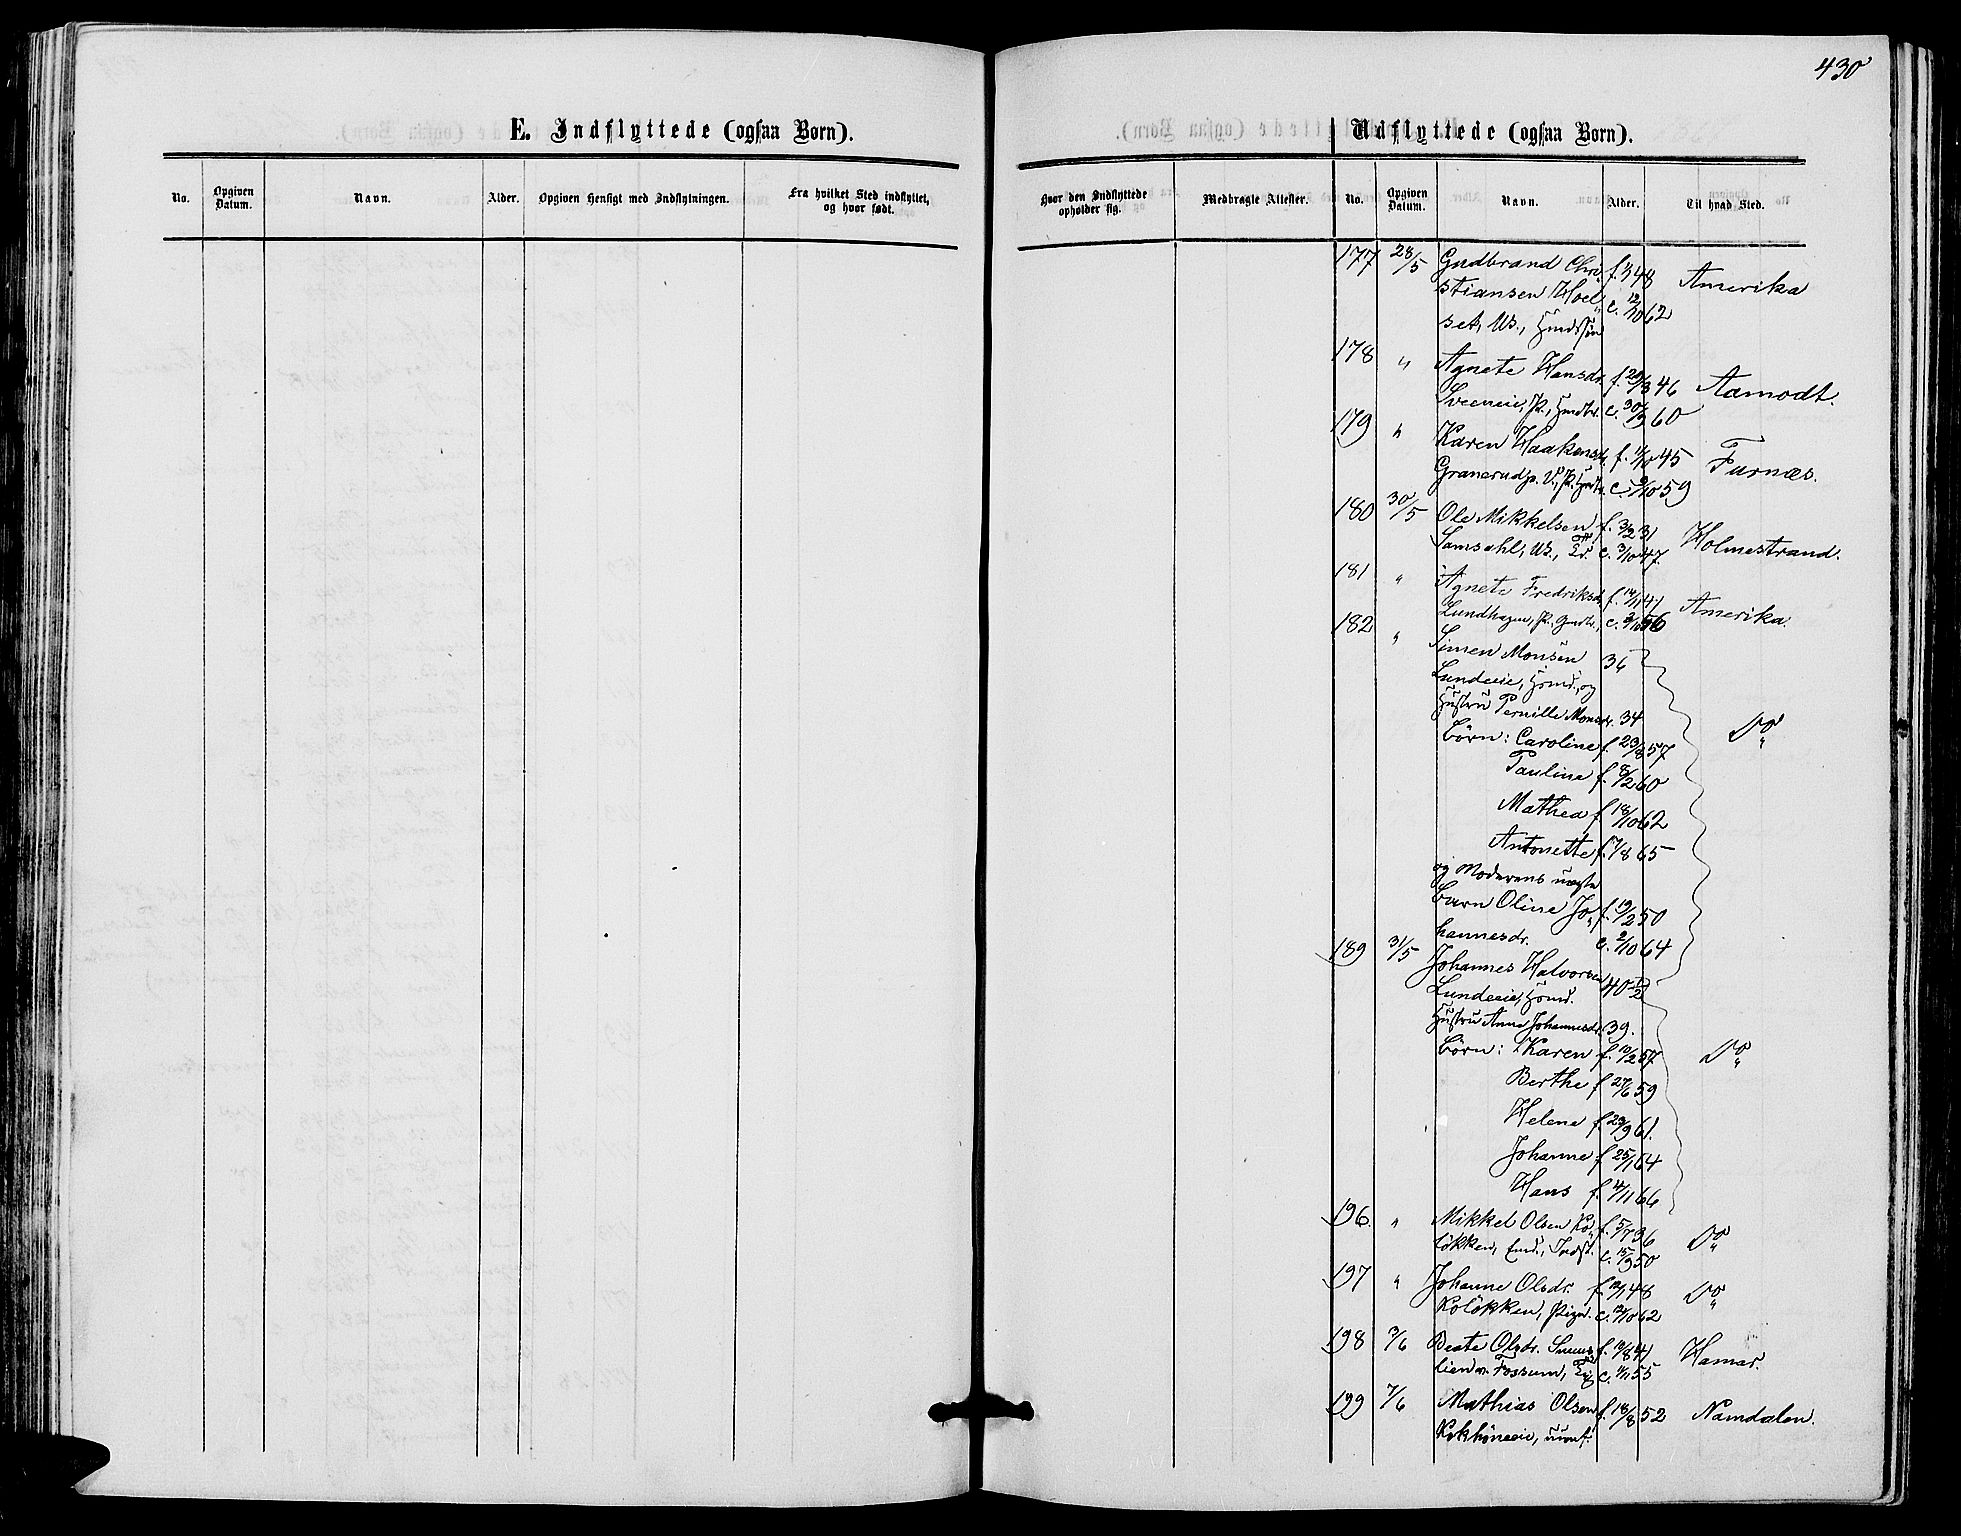 430
E. Indflyttede (ogsaa Børn).
Udflyttede (ogsaa Børn).
No. Opgiven Datum. Navn. Alder. Opgiven Hensigt med Indflytningen. Fra hvilket Sted indflyttet, og hvor født.
Hvor den Indflyttede opholder sig. Medbragte Attester. No. Opgiven Datum. Navn. Alder. Til hvad Sted.
177 28/5 Gudbrand Chri
stiansen Hoel f. 48 Amerika
set, Us., c. 12/10 62
178 " Agnete Hansdr. f. 46 Aamodt.
Sveeneie, P., c. 60
179 " Karen Haakensdr. f. 1/10 45 Furnæs.
Granerud c. 9/10 59
180 30/5 Ole Mikkelsen f. 3/2 31 Holmestrand.
Samsahl, Us., c. 3/10 47.
181 " Agnete Fredriksdr. f. 14/1 41 Amerika.
Lundhagen, P. c. 2/10 56
182 " Simen Monsen 36
Lundeeie, og
Hustru Pernille Monsdr. 34 Do
Børn: Caroline f. 23/8 57
Pauline f. 8/2 60
Mathea f. 18/10 62
Antonette f. 17/8 65
og Moderens uægte
Barn Oline Jo f. 19/2 50
hannesdr. c. 2/10 64
189 31/5 Johannes Halvorsen 40 1/2
Lundeeie,
Hustru Anne Johannesdr. 39.
Børn: Karen f. 10/2 57 Do
Berthe f. 27/6 59
Helene f. 23/9 61.
Johanne f. 25/1 64
Hans f. 4/11 66
196 " Mikkel Olsen Ko f. 5/7 36 Do
løkken, Inds. c. 15/9 50
197 " Johanne Olsdr. f. 12/1 48 Do
Koløkken, Pige. c. 12/10 62
198 3/6 Beate Olsdr. f. 12/8 41 Hamar.
lien v. Fossum, c. 11/11 55
199 7/6 Mathias Olsen f. 18/8 52 Namdalen.
ukonf.